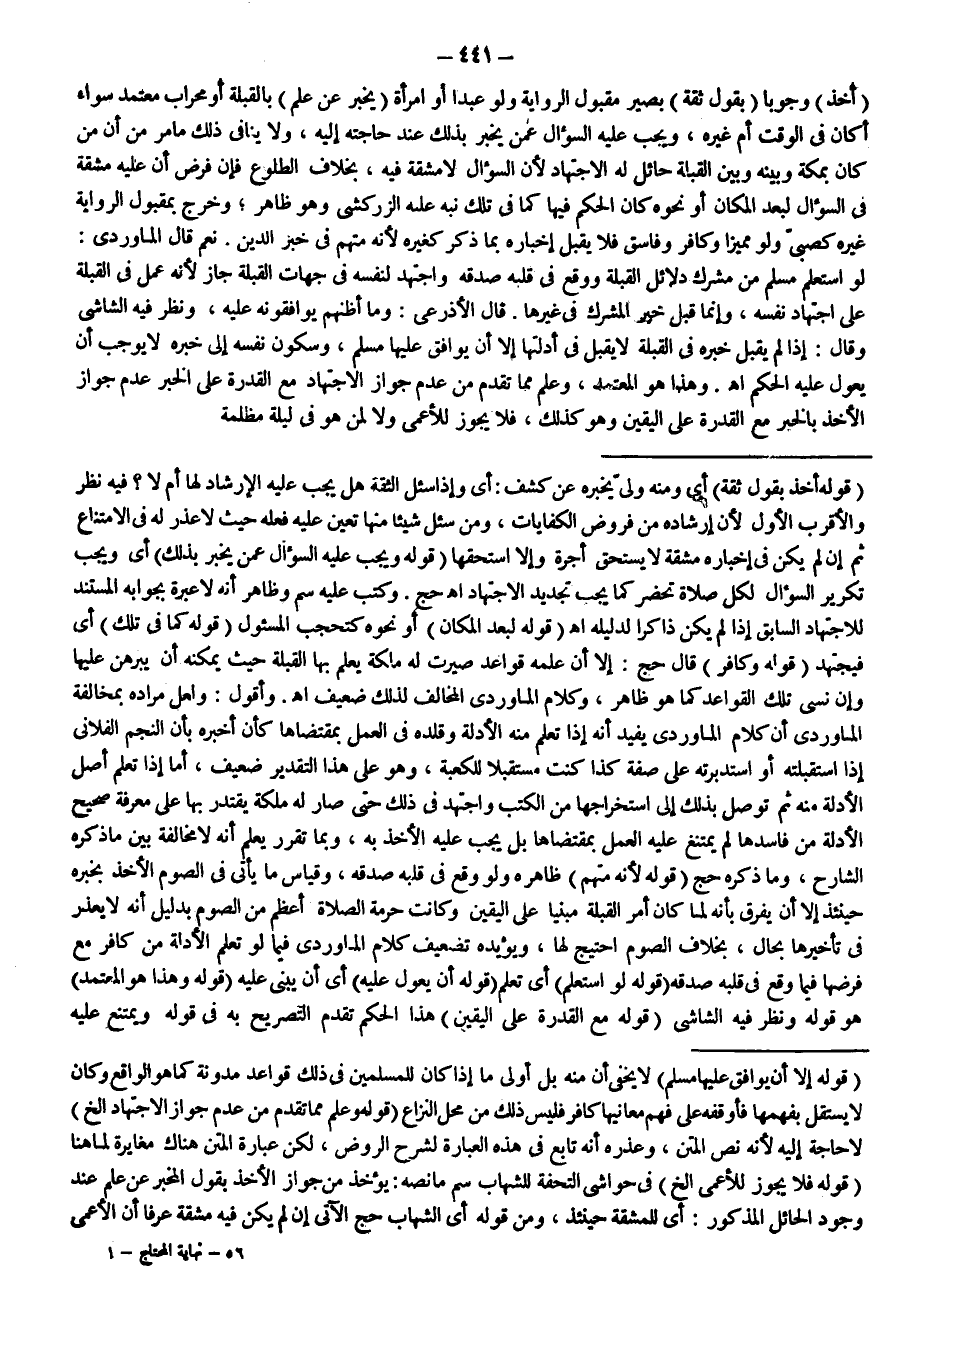 – ٤٤١ –
( أخذ ) وجوبا ( بقول ثقة ) بصير مقبول الرواية ولو عبدا أو امرأة ( يخبر عن علم ) بالقبلة أو محراب معتمد سواء
أكان فى الوقت أم غيره ، ويجب عليه السؤال عمن يخبر بذلك عند حاجته إليه ، ولا ينافى ذلك مامر من أن من
كان بمكة وبينه وبين القبلة حائل له الاجتهاد لأن السؤال لامشقة فيه ، بخلاف الطلوع فإن فرض أن عليه مشقة
فى السؤال لبعد المكان أو نحوه كان الحكم فيها كما فى تلك نبه عليه الزركشى وهو ظاهر ؛ وخرج بمقبول الرواية
غيره كصبىّ ولو مميزا وكافر وفاسق فلا يقبل إخباره بما ذكر كغيره لأنه متهم فى خبر الدين . نعم قال الماوردى :
لو استعلم مسلم من مشرك دلائل القبلة ووقع فى قلبه صدقه واجتهد لنفسه فى جهات القبلة جاز لأنه عمل فى القبلة
على اجتهاد نفسه ، وإنما قبل خبر المشرك فى غيرها . قال الأذرعى : وما أظنهم يوافقونه عليه ، ونظر فيه الشاشى
وقال : إذا لم يقبل خبره فى القبلة لايقبل فى أدلتها إلا أن يوافق عليها مسلم ، وسكون نفسه إلى خبره لايوجب أن
يعول عليه الحكم اه . وهذا هو المعتمد ، وعلم مما تقدم من عدم جواز الاجتهاد مع القدرة على الخبر عدم جواز
الأخذ بالخبر مع القدرة على اليقين وهو كذلك ، فلا يجوز للأعمى ولا لمن هو فى ليلة مظلمة
( قوله أخذ بقول ثقة ) أى ومنه ولىّ يخبره عن كشف : أى وإذا سئل الثقة هل يجب عليه الإرشاد لها أم لا ؟ فيه نظر
والأقرب الأول لأن إرشاده من فروض الكفايات ، ومن سئل شيئا منها تعين عليه فعله حيث لاعذر له فى الامتناع
ثم إن لم يكن فى إخباره مشقة لا يستحق أجرة وإلا استحقها ( قوله ويجب عليه السؤال عمن يخبر بذلك ) أى ويجب
تكرير السؤال لكل صلاة تحضر كما يجب تجديد الاجتهاد اه حج . وكتب عليه سم وظاهر أنه لاعبرة بجوابه المستند
للاجتهاد السابق إذا لم يكن ذاكرا لدليله اه ( قوله لبعد المكان ) أو نحوه كتحجب المسئول ( قوله كما فى تلك ) أى
فيجتهد ( قوله وكافر ) قال حج : إلا أن علمه قواعد صيرت له ملكة يعلم بها القبلة حيث يمكنه أن يبرهن عليها
وإن نسى تلك القواعد كما هو ظاهر ، وكلام الماوردى المخالف لذلك ضعيف اه . وأقول : ولعل مراده بمخالفة
الماوردى أن كلام الماوردى يفيد أنه إذا تعلم منه الأدلة وقلده فى العمل بمقتضاها كأن أخبره بأن النجم الفلانى
إذا استقبلته أو استدبرته على صفة كذا كنت مستقبلا للكعبة ، وهو على هذا التقدير ضعيف ، أما إذا تعلم أصل
الأدلة منه ثم توصل بذلك إلى استخراجها من الكتب واجتهد فى ذلك حتى صار له ملكة يقتدر بها على معرفة صحيح
الأدلة من فاسدها لم يمتنع عليه العمل بمقتضاها بل يجب عليه الأخذ به ، وبما تقرر يعلم أنه لامخالفة بين ماذكره
الشارح ، وما ذكره حج ( قوله لأنه متهم ) ظاهره ولو وقع فى قلبه صدقه ، وقياس ما يأتى فى الصوم الأخذ بخبره
حينئذ إلا أن يفرق بأنه لما كان أمر القبلة مبنيا على اليقين وكانت حرمة الصلاة أعظم من الصوم بدليل أنه لايعذر
فى تأخيرها بحال ، بخلاف الصوم احتيج لها ، ويؤيده تضعيف كلام الماوردى فيما لو تعلم الأدلة من كافر مع
فرضها فيما وقع فى قلبه صدقه ( قوله لو استعلم ) أى تعلم ( قوله أن يعول عليه ) أى أن يبنى عليه ( قوله وهذا هو المعتمد )
هو قوله ونظر فيه الشاشى ( قوله مع القدرة على اليقين ) هذا الحكم تقدم التصريح به فى قوله ويمتنع عليه
( قوله إلا أن يوافق عليها مسلم ) لايخفى أن منه بل أولى ما إذا كان للمسلمين فى ذلك قواعد مدونة كما هو الواقع وكان
لايستقل بفهمها فأوقفه على فهم معانيها كافر فليس ذلك من محل النزاع ( قوله وعلم مما تقدم من عدم جواز الاجتهاد الخ )
لاحاجة إليه لأنه نص المتن ، وعذره أنه تابع فى هذه العبارة لشرح الروض ، لكن عبارة المتن هناك مغايرة لما هنا
( قوله فلا يجوز للأعمى الخ ) فى حواشى التحفة للشهاب سم مانصه : يؤخذ من جواز الأخذ بقول المخبر عن علم عند
وجود الحائل المذكور : أى للمشقة حينئذ ، ومن قوله أى الشهاب حج الآتى إن لم يكن فيه مشقة عرفا أن الأعمى
٥٦ – نهاية المحتاج – ١